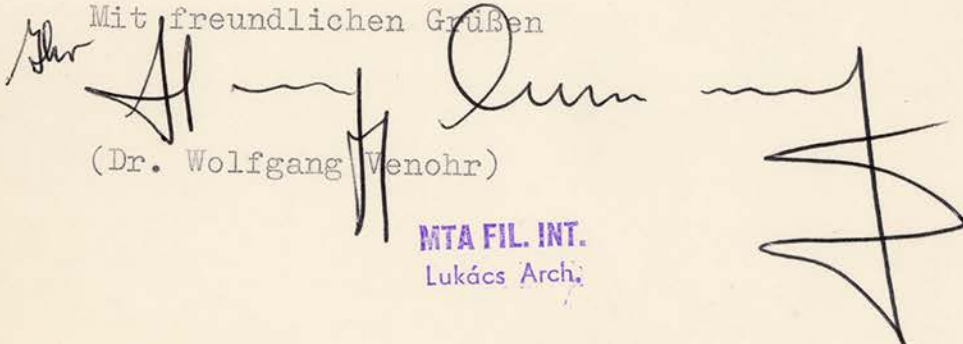 Mit freundlichen Grüßen
Ihr
(Dr. Wolfgang Venohr)
MTA FIL. INT.
Lukács Arch.